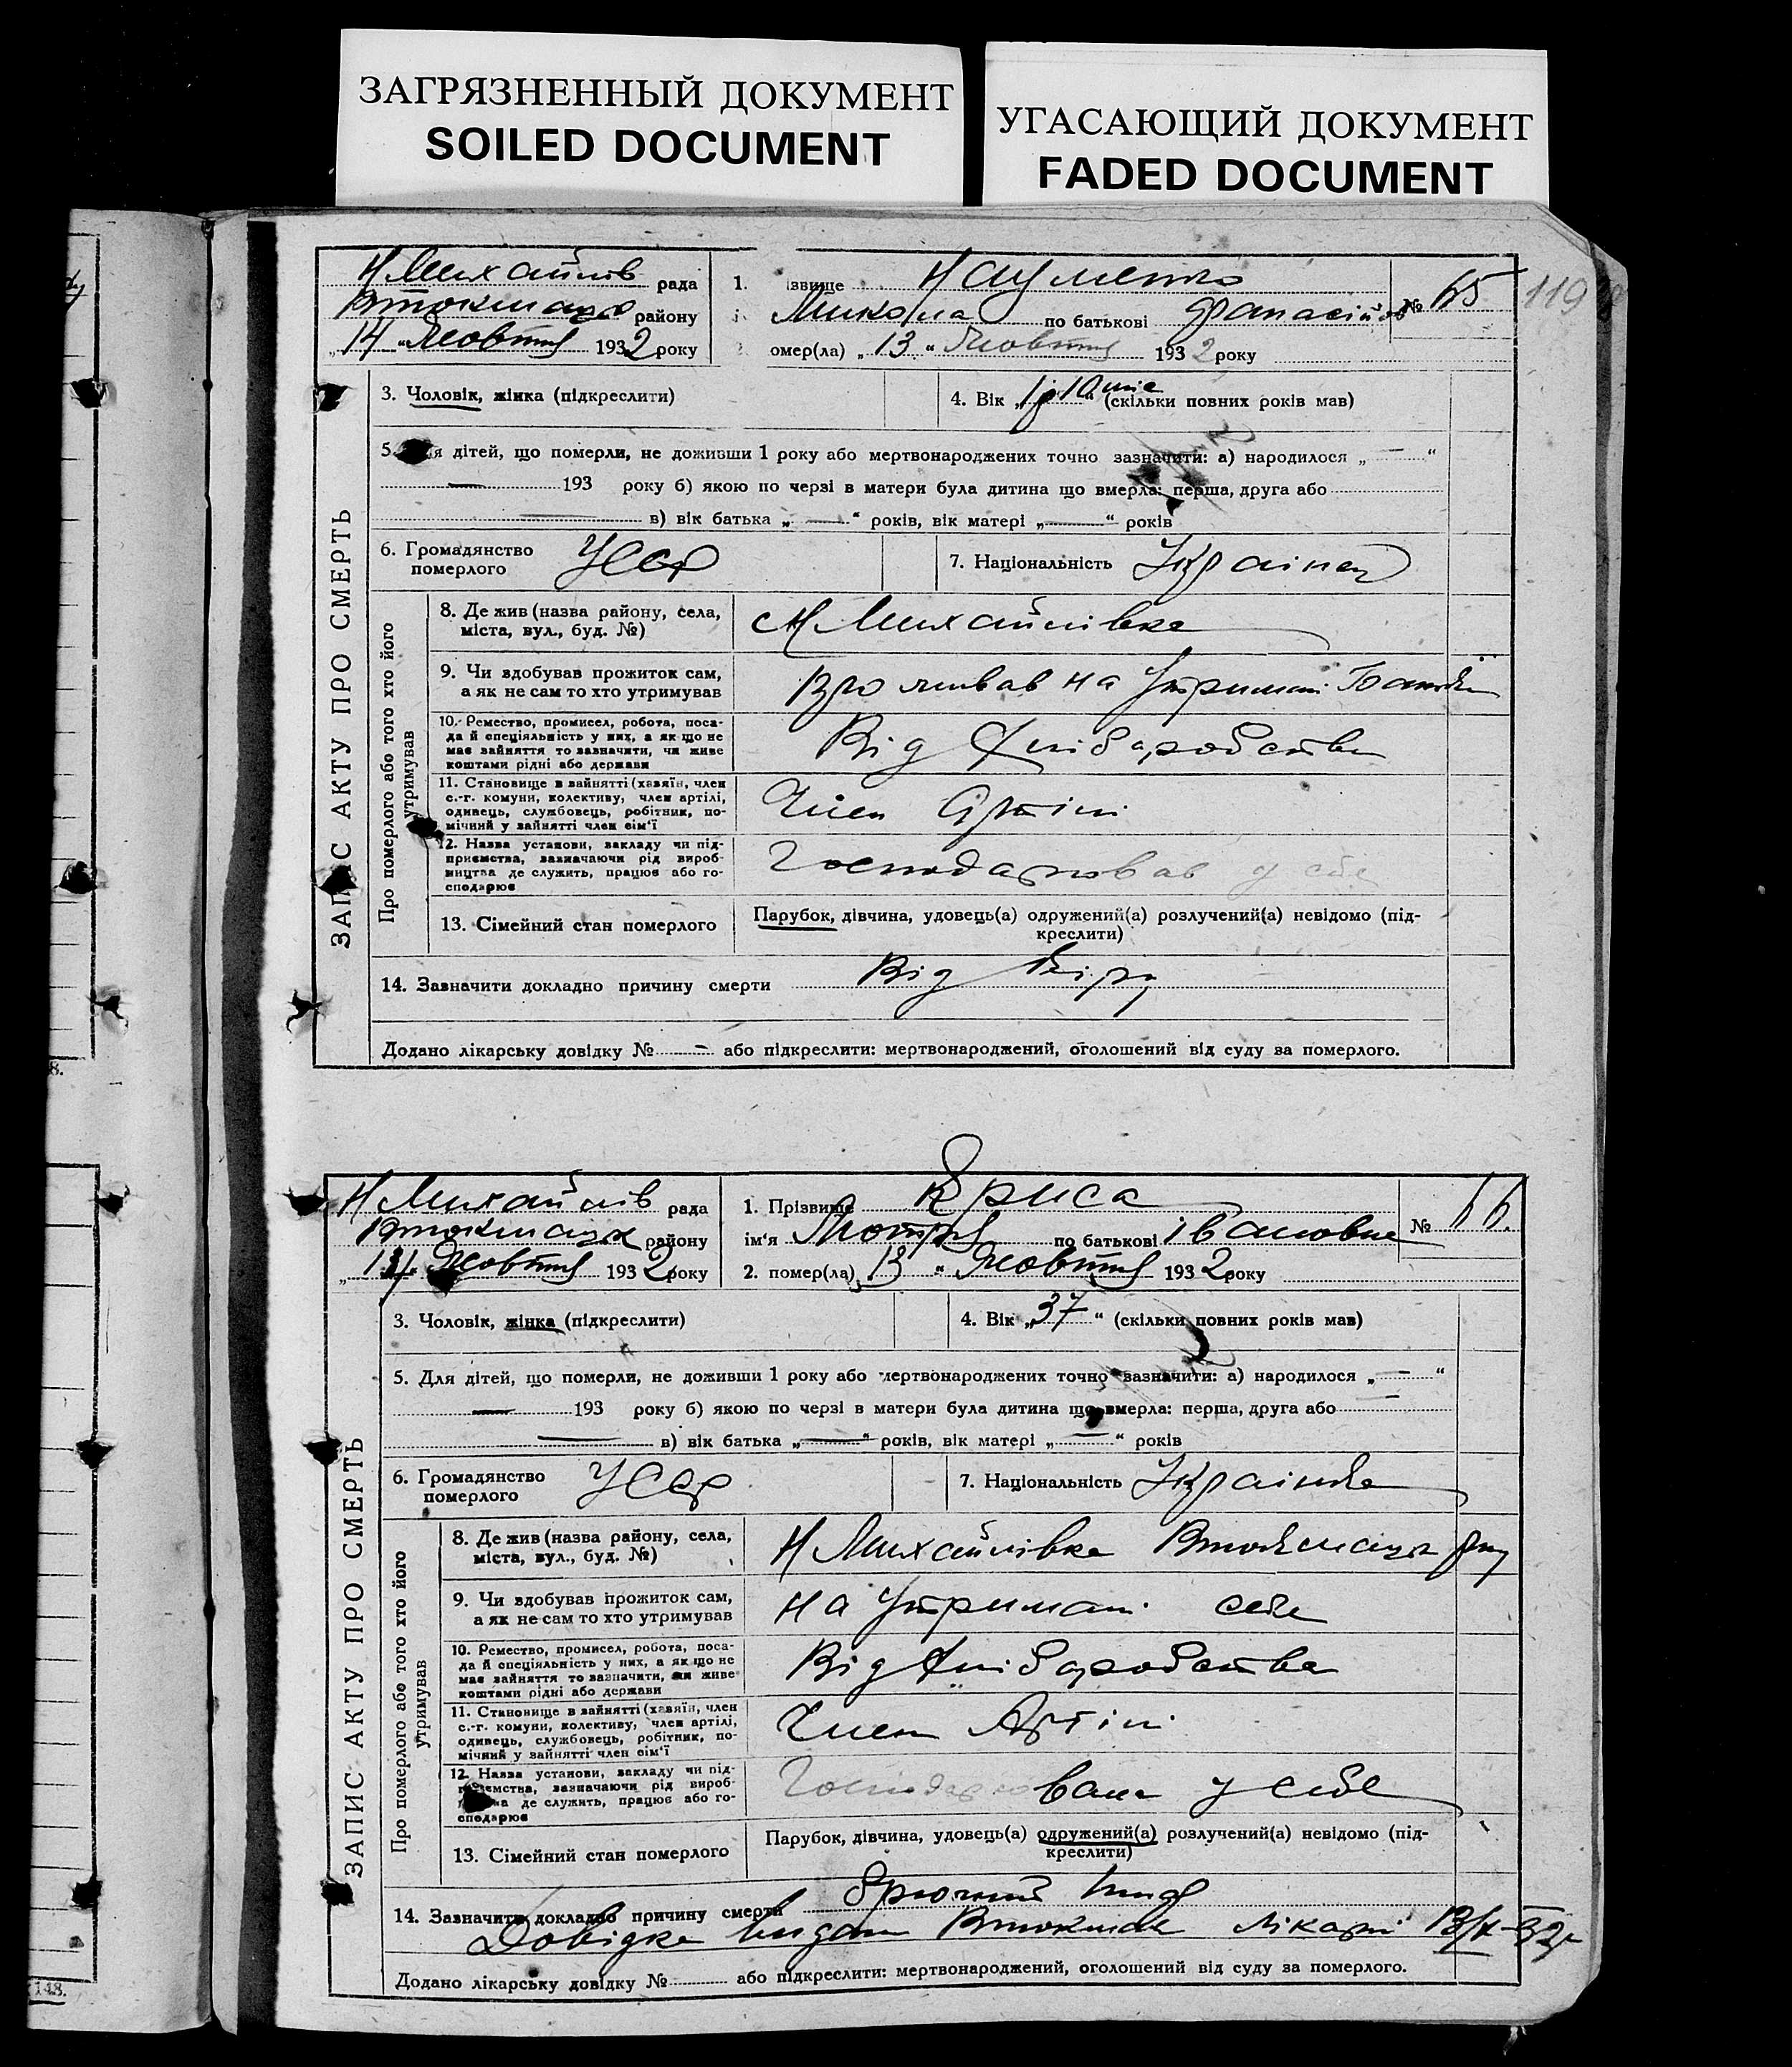 ЗАГРЯЗНЕННЫЙ ДОКУМЕНТ
SOILED DOCUMENT
УГАСАЮЩИЙ ДОКУМЕНТ
FADED DOCUMENT
119
ЗАПИС АКТУ ПРО СМЕРТЬ
Н Михайлів рада
Втокмацьк району
"14" Жовтня 1932 року
1. ізвище Науменко
Микола по батькові Фанасійов
№ 65
омер(ла) "13" Жовтня 1932 року
3. Чоловік, жінка (підкреслити)
4. Вік "1р 10 міс" (скільки повних років мав)
5. ля дітей, що померли, не доживши 1 року або мертвонароджених точно зазначити: а) народилося „ — “
— 193 року б) якою по черзі в матери була дитина що вмерла: перша, друга або
— в) вік батька „ — “ років, вік матері „ — “ років
6. Громадянство
померлого УССР
7. Національність Українец
Про померлого або того хто його
утримував
8. Де жив (назва району, села,
міста, вул., буд. №)
Н Михайлівка
9. Чи здобував прожиток сам,
а як не сам то хто утримував
на Утримані Батьків
10. Ремество, промисел, робота, поса-
да й спеціяльність у них, а як що не
має зайняття то зазначити, чи живе
коштами рідні або держави
Від Хлібаробства
11. Становище в зайнятті (хазяїн, член
с.-г. комуни, колективу, член артілі,
одинець, службовець, робітник, по-
мічний у зайнятті член сім'ї
Член Артілі
12. Назва установи, закладу чи під-
приємства, зазначаючи рід вироб-
ництва де служить, працює або го-
сподарює
Господарював у себе
13. Сімейний стан померлого
Парубок, дівчина, удовець(а) одружений(а) розлучений(а) невідомо (під-
креслити)
14. Зазначити докладно причину смерти Від
Додано лікарську довідку № - або підкреслити: мертвонароджений, оголошений від суду за померлого.
ЗАПИС АКТУ ПРО СМЕРТЬ
Н Михайлів рада
Втокмацьк району
Жовтня 1932 року
1. Прізвище Криса
ім'я Мотря по батькові івановна
№ 66.
2. помер(ла) 13 " Жовтня 1932 року
3. Чоловік, жінка (підкреслити)
4. Вік „37“ (скільки повних років мав)
5. Для дітей, що померли, не доживши 1 року або мертвонароджених точно зазначити: а) народилося „ — “
— 193 року б) якою по черзі в матери була дитина що вмерла: перша, друга або —
— в) вік батька „ — “ років, вік матері „ — “ років
6. Громадянство
померлого УССР
7. Національність Українка
Про померлого або того хто його
утримував
8. Де жив (назва району, села,
міста, вул., буд. №)
Н Михайлівка Втокмацьк р-ну
9. Чи здобував прожиток сам,
а як не сам то хто утримував
на Утримані себе
10. Ремество, промисел, робота, поса-
да й спеціяльність у них, а як що не
має зайняття то зазначити, чи живе
коштами рідні або держави
Від Хлібаробства
11. Становище в зайнятті (хазяїн, член
с.-г. комуни, колективу, член артілі,
одинець, службовець, робітник, по-
мічний у зайнятті член сім'ї
Член Артілі
12. Назва установи, закладу чи під-
ємства, зазначаючи рід вироб-
а де служить, працює або го-
сподарює
Господарювала у себе
13. Сімейний стан померлого
Парубок, дівчина, удовець(а) одружений(а) розлучений(а) невідомо (під-
креслити)
14. Зазначити докладно причину смерти Брюшний тиф
Довідка видана Втокмак лікарні 13/X-32р
Додано лікарську довідку № або підкреслити: мертвонароджений, оголошений від суду за померлого.
148.